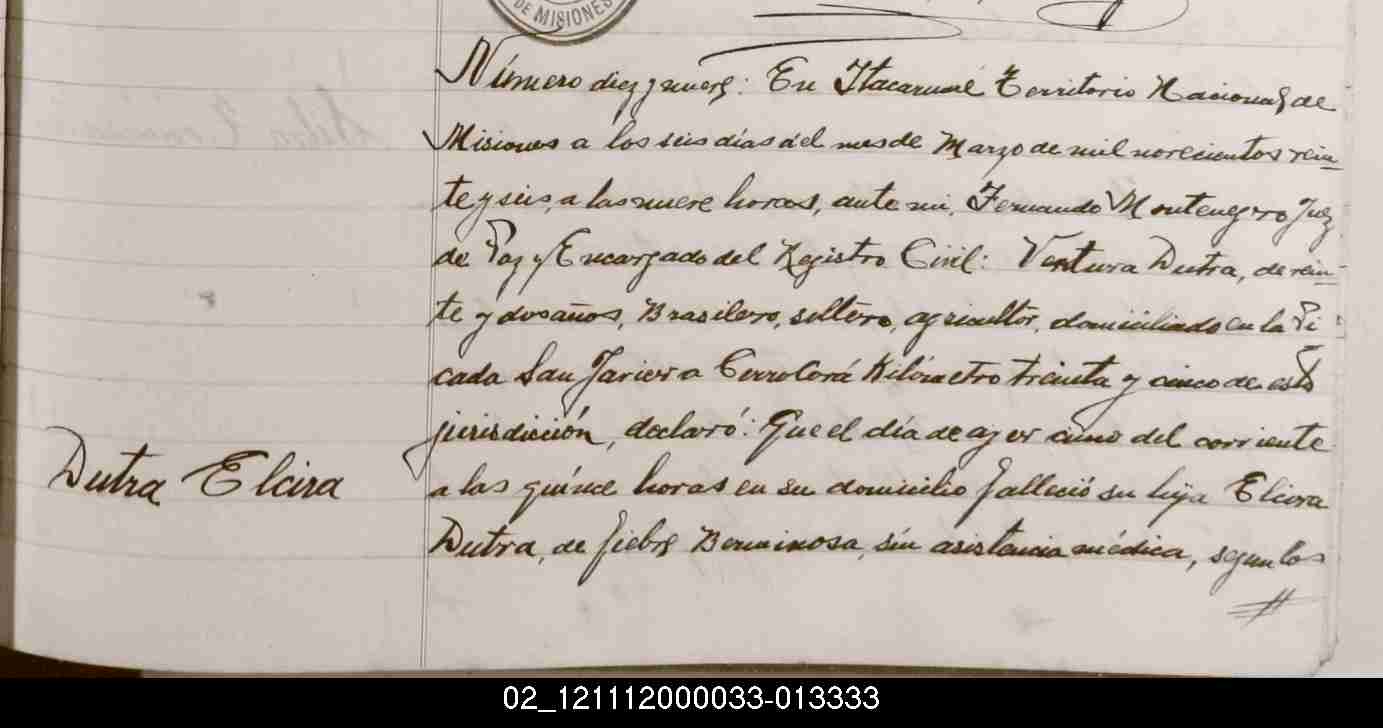 DE MISIONES
Número diez y nueve: En Itacaruaré Territorio Nacional de
Misiones a los seis días del mes de Marzo de mil novecientos vein
te y seis, a las nueve horas, ante mi, Fernando Montenegro Juez
de Paz y Encargado del Registro Civil: Ventura Dutra, de vein-
te y dos años, Brasilero, soltero, agricultor, domiciliado en la Pi
cada San Javier a Cerro Corá Kilómetro treinta y cinco de esta
jurisdicción, declaró: Que el día de ayer cinco del corriente
Dutra Elcira
a las quince horas en su domicilio falleció su hija Elcira
Dutra, de fiebre Berminosa, sin asistencia médica, segun los
02_121112000033-013333